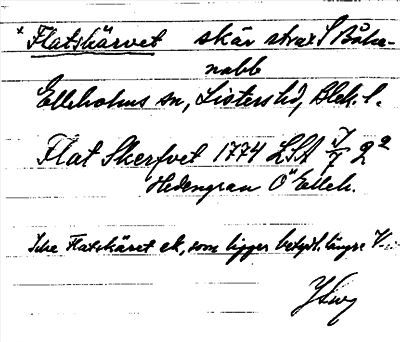 * Flatskärvet skär strax S Båka-
nabb
Elleholms sn, Listers hd, Blek. l.
Flat Skerfvet 1774 LSA 2²
Hedengran Ö Elleh.
Icke Flatskäret ek, som ligger betydl. längre V.